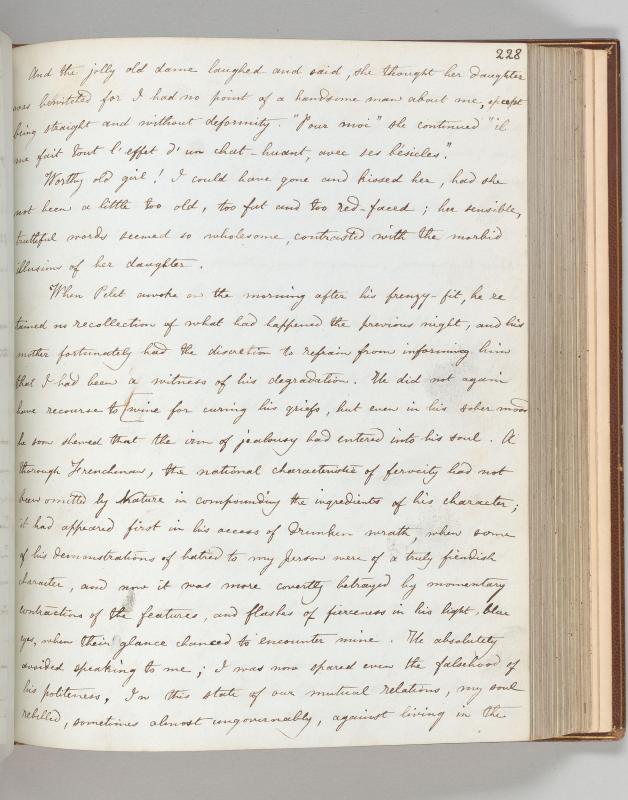 228
And the jolly old dame laughed and said, she thought her daughter
was bewitched for I had no point of a handsome man about me, except
being straight and without deformity. "Pour moi" she continued "il
me fait tout l'effet d'un chat-huant, avec ses bésicles".
Worthy old girl! I could have gone and kissed her, had she
not been a little too old, too fat and too red-faced; her sensible,
truthful words seemed so wholesome, contrasted with the morbid
illusions of her daughter.
When Pelet awoke on the morning after his frenzy-fit, he re
tained no recollection of what had happened the previous night, and his
mother fortunately had the discretion to refrain from informing him
that I had been a witness of his degradation. He did not again
have recourse to wine for curing his griefs, but even in his sober mood
he soon shewed that the iron of jealousy had entered into his soul. A
thorough Frenchman, the national characteristic of ferocity had not
been omitted by Nature in compounding the ingredients of his character;
it had appeared first in his access of drunken wrath, when some
of his demonstrations of hatred to my person were of a truly fiendish
character, and now it was more covertly betrayed by momentary
contractions of the features, and flashes of fierceness in his light, blue
eyes, when their glance chanced to encounter mine. He absolutely
avoided speaking to me; I was now spared even the falsehood of
his politeness. In this state of our mutual relations, my soul
rebelled, sometimes almost ungovernably, against living in the